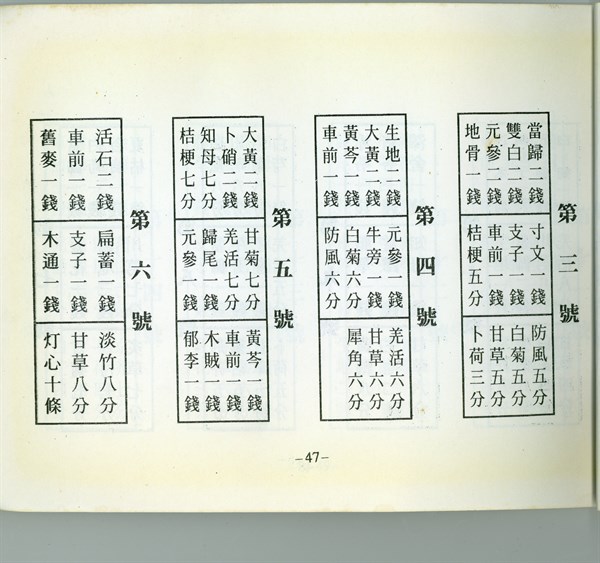 第三號
當歸二錢
雙白二錢
元參二錢
地骨一錢
寸文一錢
支子一錢
車前一錢
桔梗五分
防風五分
白菊五分
甘草五分
卜荷三分
第四號
生地二錢
大黃二錢
黃芩一錢
車前一錢
元參一錢
牛旁一錢
白菊六分
防風六分
羌活六分
甘草六分
犀角六分
第五號
大黃二錢
卜硝二錢
知母七分
桔梗七分
甘菊七分
羌活七分
歸尾一錢
元參一錢
黃芩一錢
車前一錢
木賊一錢
郁李一錢
第六號
活石二錢
車前一錢
舊麥一錢
扁蓄一錢
支子一錢
木通一錢
淡竹八分
甘草八分
灯心十條
-47-